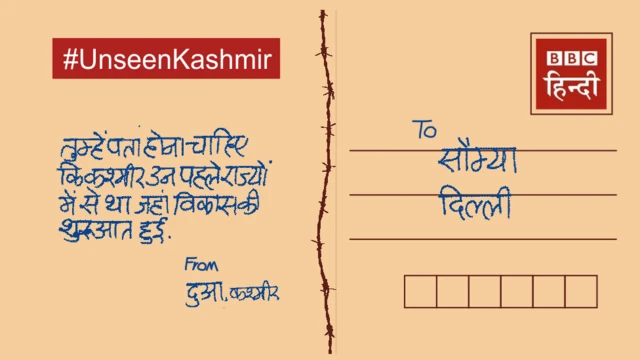 #UnseenKashmir
तुम्हें पता होना चाहिए
कि कश्मीर उन पहले राज्यों
में से था जहां विकास की
शुरुआत हुई.
From
दुआ, कश्मीर
BBC
हिन्दी
To
सौम्या
दिल्ली